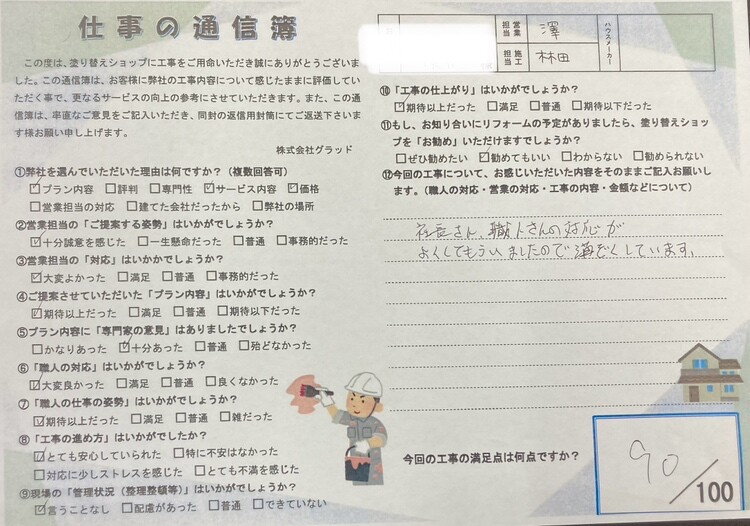 仕事の通信簿
この度は、塗り替えショップに工事をご用命いただき誠にありがとうございま
した。この通信簿は、お客様に弊社の工事内容について感じたままに評価してい
ただく事で、更なるサービスの向上の参考にさせていただきます。また、この通
信簿は、率直なご意見をご記入いただき、同封の返信用封筒にてご返送下さいま
す様お願い申し上げます。
株式会社グラッド
①弊社を選んでいただいた理由は何ですか?(複数回答可)
☑プラン内容 □評判 □専門性 ☑サービス内容 ☑価格
□営業担当の対応 □建てた会社だったから □弊社の場所
②営業担当の「ご提案する姿勢」はいかがでしょうか?
☑十分誠意を感じた □一生懸命だった □普通 □事務的だった
③営業担当の「対応」はいかがでしょうか?
☑大変よかった □満足 □普通 □事務的だった
④ご提案させていただいた「プラン内容」はいかがでしょうか?
☑期待以上だった □満足 □普通 □期待以下だった
⑤プラン内容に「専門家の意見」はありましたでしょうか?
□かなりあった ☑十分あった □普通 □殆どなかった
⑥「職人の対応」はいかがでしょうか?
☑大変良かった □満足 □普通 □良くなかった
⑦「職人の仕事の姿勢」はいかがでしょうか?
☑期待以上だった □満足 □普通 □雑だった
⑧「工事の進め方」はいかがでしたか?
☑とても安心していられた □特に不安はなかった
□対応に少しストレスを感じた □とても不満を感じた
⑨現場の「管理状況(整理整頓等)」はいかがでしょうか?
☑言うことなし □配慮があった □普通 □できていない
営業担当 澤
施工担当 林田
ハウスメーカー
⑩「工事の仕上がり」はいかがでしょうか?
☑期待以上だった □満足 □普通 □期待以下だった
⑪もし、お知り合いにリフォームの予定がありましたら、塗り替えショッ
プを「お勧め」いただけますでしょうか?
□ぜひ勧めたい ☑勧めてもいい □わからない □勧められない
⑫今回の工事について、お感じいただいた内容をそのままご記入お願いし
ます。(職人の対応・営業の対応・工事の内容・金額などについて)
社長さん、職人さんの対応が
よくしてもらいましたので満ぞくしています。
今回の工事の満足点は何点ですか?
90/100